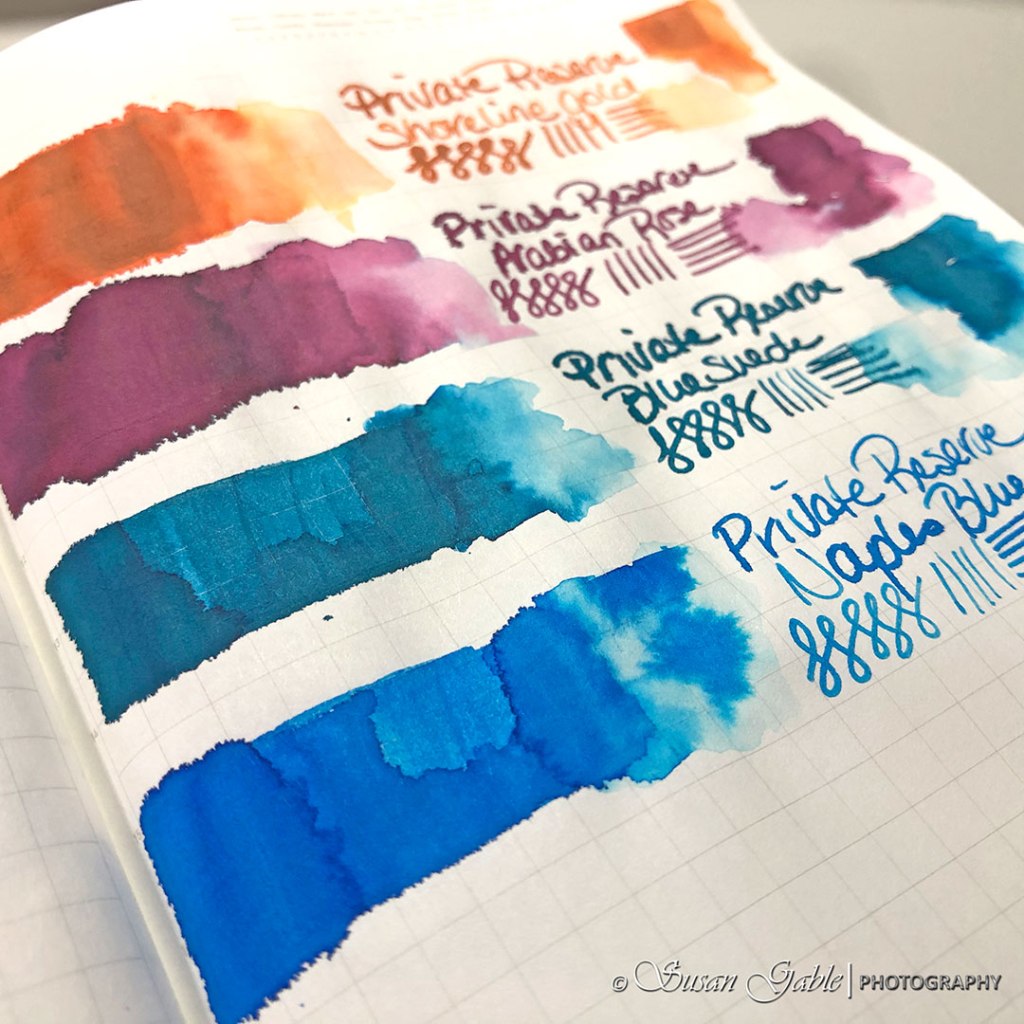 Private Reserve
Shoreline Gold
Private Reserve
Arabian Rose
Private Reserve
Blue Suede
Private Reserve
Naples Blue
© Susan Gable | PHOTOGRAPHY